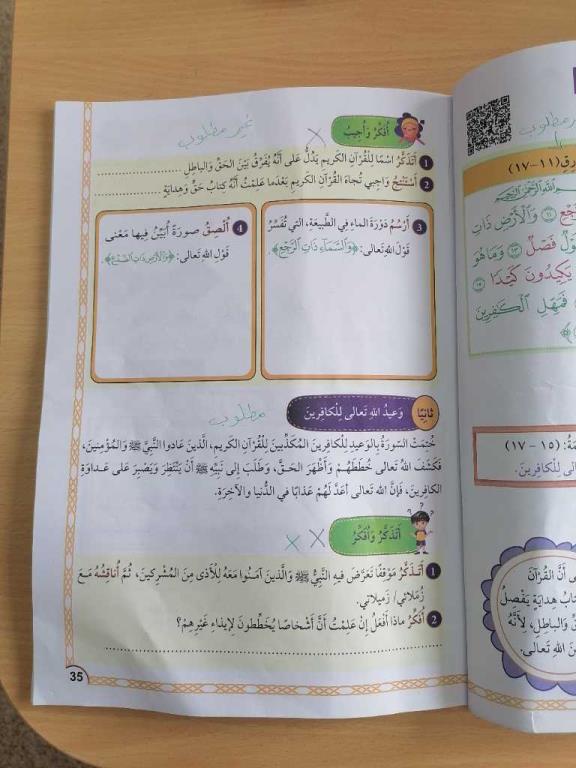 أُفَكِّرُ وَأُجيبُ
غير مطلوب
1 أَتَذَكَّرُ اسْمًا لِلْقُرْآنِ الكَريمِ يَدُلُّ عَلى أَنَّهُ يُفَرِّقُ بَيْنَ الحَقِّ وَالباطِلِ
2 أَسْتَنْتِجُ واجِبي تُجاهَ القُرْآنِ الكَريمِ بَعْدَما عَلِمْتُ أَنَّهُ كِتابُ حَقٍّ وَهِدايَةٍ
3 أَرْسُمُ دَوْرَةَ الماءِ في الطَّبيعَةِ، التي تُفَسِّرُ
قَوْلَ اللهِ تَعالى: ﴿وَالسَّمَاءِ ذَاتِ الرَّجْعِ﴾
4 أُلْصِقُ صورَةً أُبَيِّنُ فيها مَعْنى
قَوْلِ اللهِ تَعالى: ﴿وَالْأَرْضِ ذَاتِ الصَّدْعِ﴾
ثانِيًا وَعيدُ اللهِ تَعالى لِلْكافِرينَ
مطلوب
خُتِمَتْ السّورَةُ بِالوَعيدِ لِلْكافِرينَ المُكَذِّبينَ لِلْقُرْآنِ الكَريمِ، الَّذينَ عادَوا النَّبِيَّ ﷺ وَالمُؤْمِنينَ،
فَكَشَفَ اللهُ تَعالى خُطَطَهُمْ وَأَظْهَرَ الحَقَّ، وَطَلَبَ إِلى نَبِيِّهِ ﷺ أَنْ يَنْتَظِرَ وَيَصْبِرَ عَلى عَداوَةِ
الكافِرينَ، فَإِنَّ اللهَ تَعالى أَعَدَّ لَهُمْ عَذابًا في الدُّنْيا وَالآخِرَةِ.
أَتَذَكَّرُ وَأُفَكِّرُ
1 أَتَذَكَّرُ مَوْقِفًا تَعَرَّضَ فيهِ النَّبِيُّ ﷺ وَالَّذينَ آمَنُوا مَعَهُ لِلْأَذى مِنَ المُشْرِكينَ، ثُمَّ أُناقِشُهُ مَعَ
زُمَلائي/ زَميلاتي.
2 أُفَكِّرُ ماذا أَفْعَلُ إِنْ عَلِمْتُ أَنَّ أَشْخاصًا يُخَطِّطونَ لِإيذاءِ غَيْرِهِمْ؟
35
مطلوب
(١١-١٧)
وَالْأَرْضِ ذَاتِ
فَصْلٌ
وَمَا هُوَ
يَكِيدُونَ كَيْدًا
فَمَهِّلِ الْكَافِرِينَ
(١٥ - ١٧)
لِلْكافِرينَ.
أَنَّ القُرْآنَ
هِدايَةٍ يَفْصِلُ
وَالباطِلِ، لِأَنَّهُ
اللهِ تَعالى.